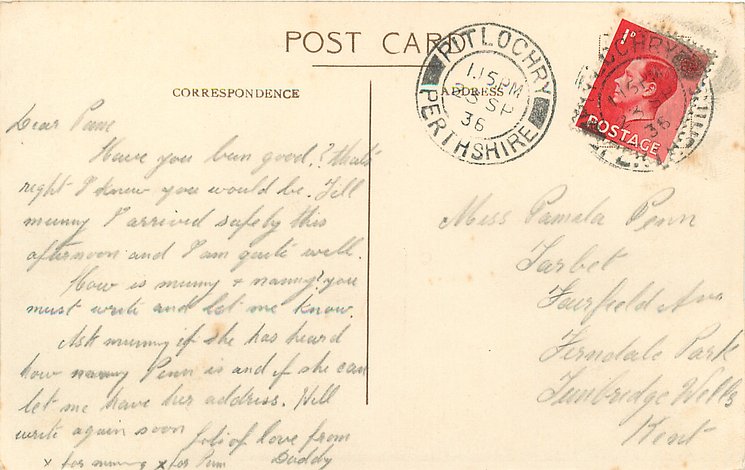 POST CARD
CORRESPONDENCE
ADDRESS
PITLOCHRY
1.15 PM
23 SP
36
PERTHSHIRE
1D
POSTAGE
Dear Pam
Have you been good? that's
right I knew you would be. Tell
mummy I arrived safely this
afternoon and I am quite well.
How is mummy + nanny? you
must write and let me know.
Ask mummy if she has heard
how nanny Penn is and if she can
let me have her address. Will
write again soon
lots of love from
x for mummy x for Pam Daddy
Miss Pamela Penn
Tarbet
Fairfield Ave
Ferndale Park
Tunbridge Wells
Kent